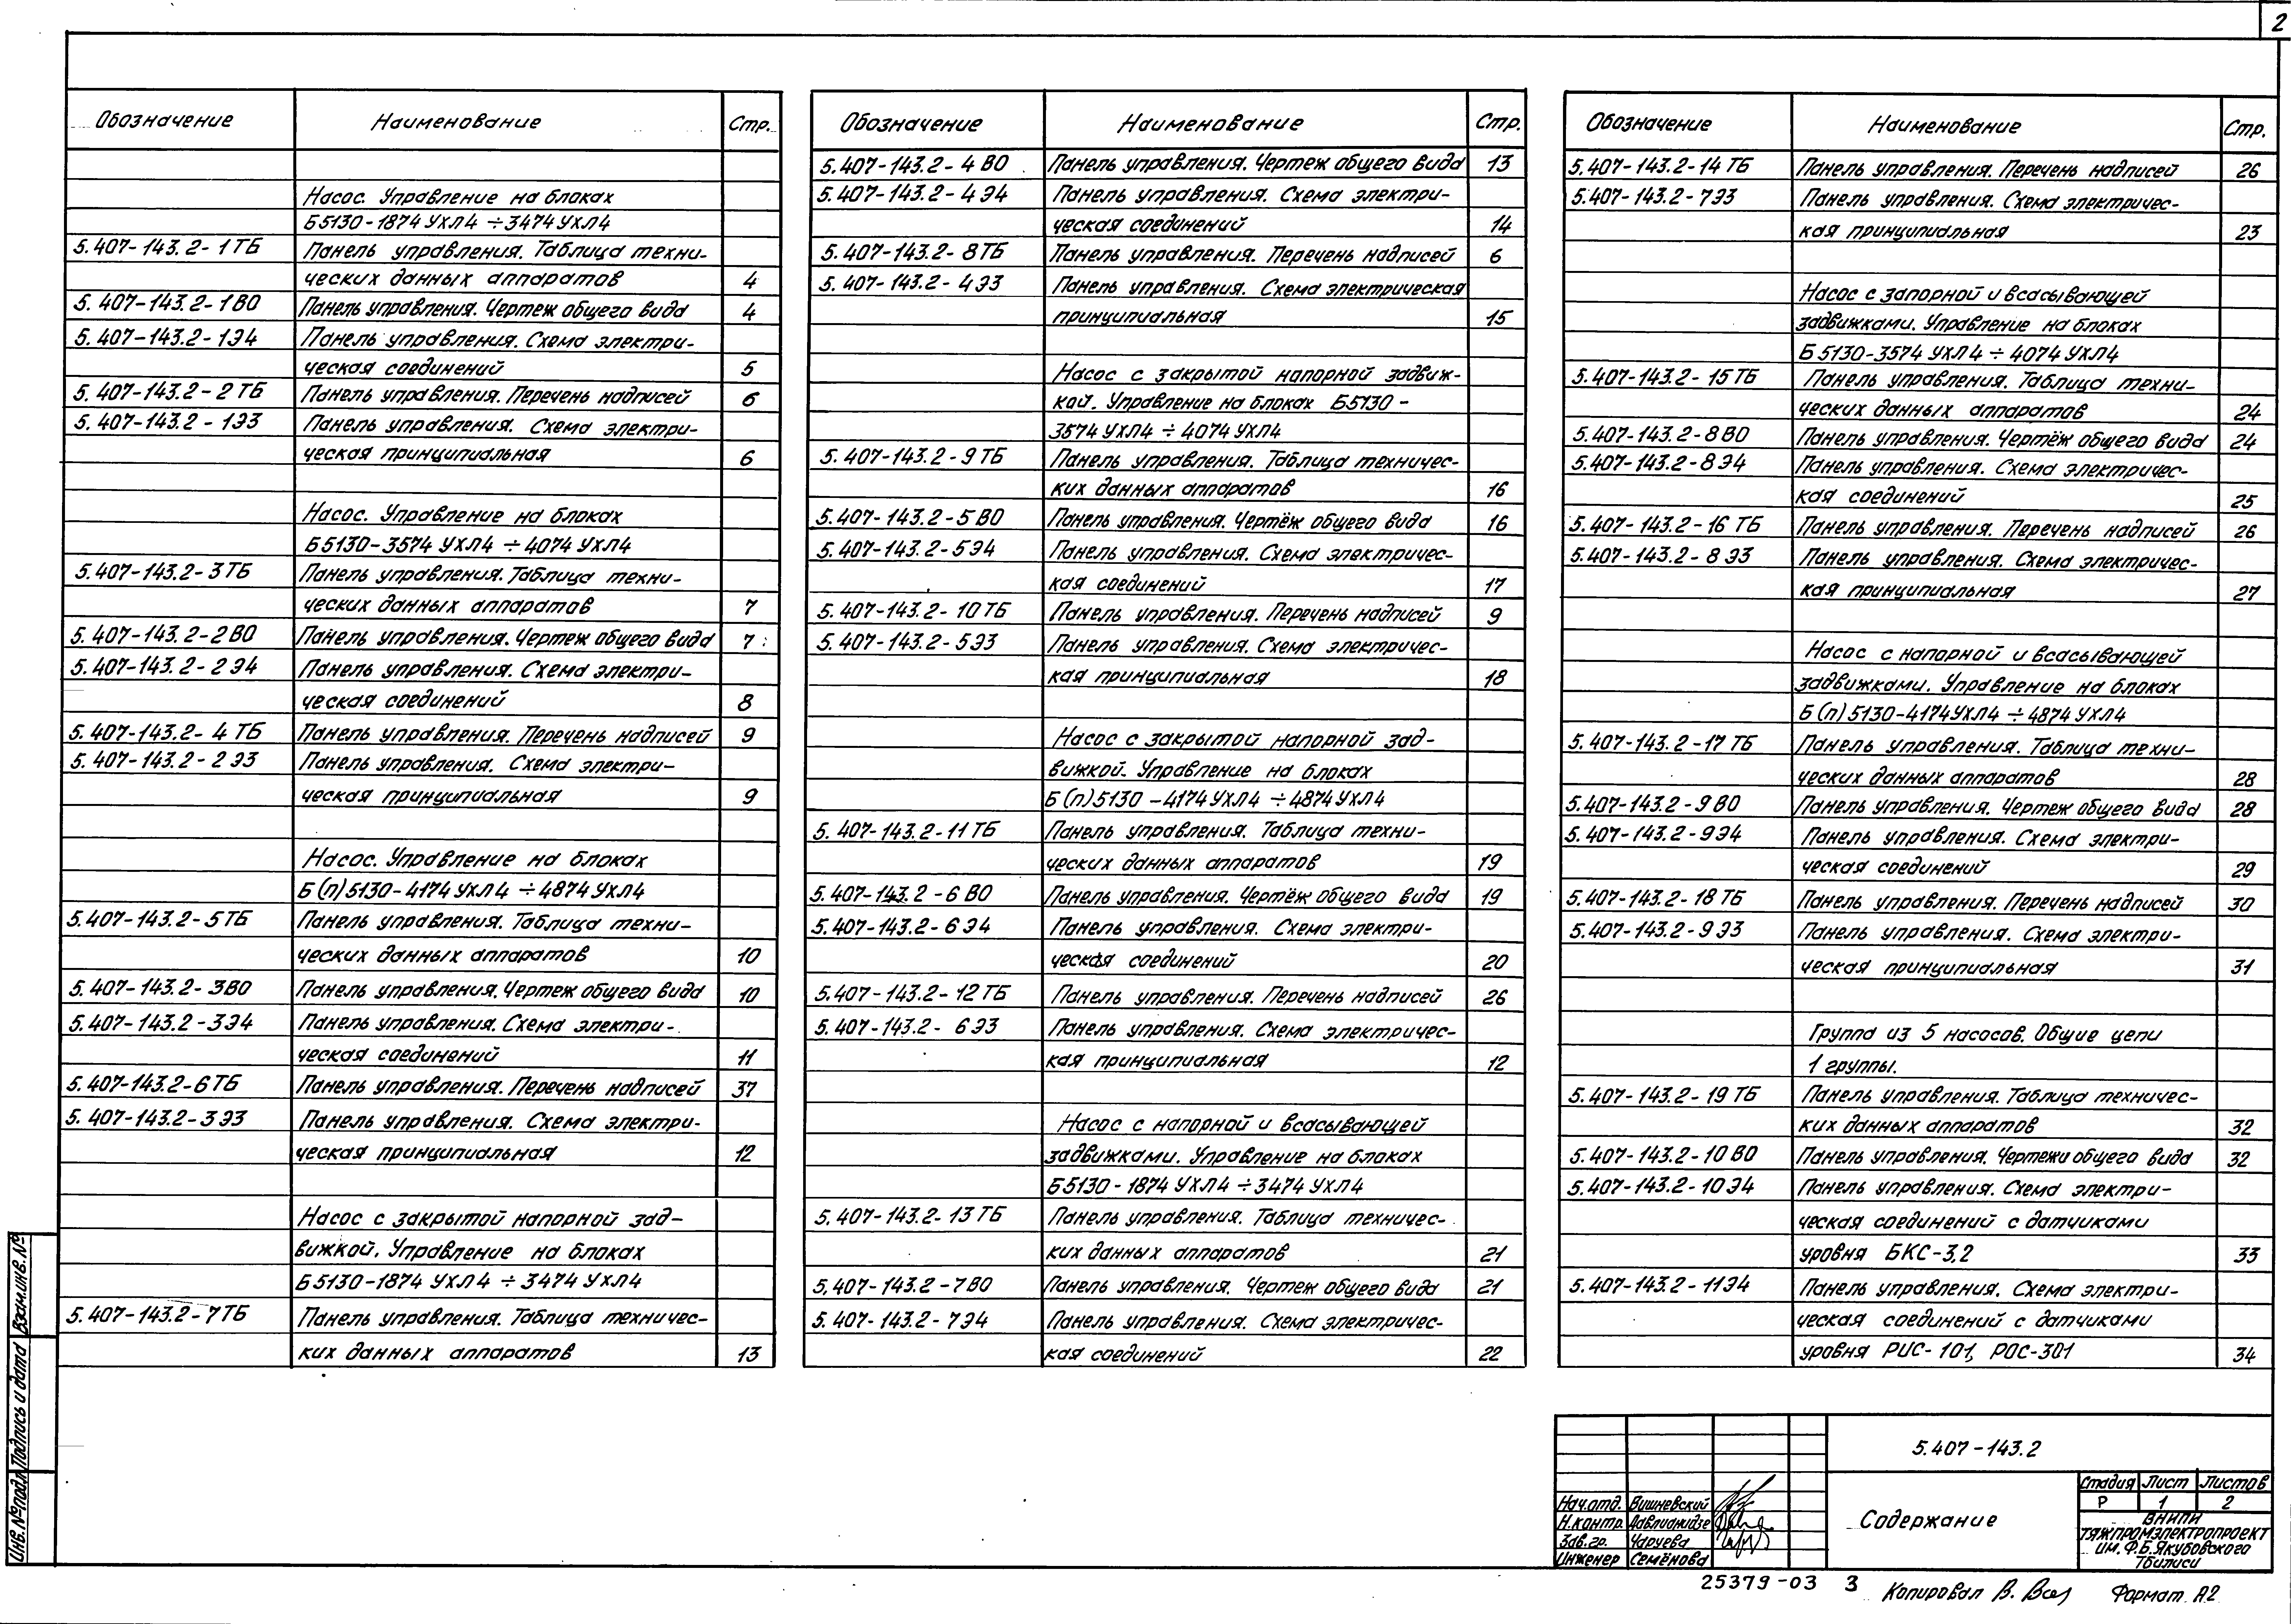 2
Обозначение Наименование Стр.
Насос. Управление на блоках
Б5130-1874 УХЛ4 ÷ 3474 УХЛ4
5.407-143.2-1ТБ Панель управления. Таблица техни-
ческих данных аппаратов 4
5.407-143.2-1ВО Панель управления. Чертеж общего вида 4
5.407-143.2-1Э4 Панель управления. Схема электри-
ческая соединений 5
5.407-143.2-2ТБ Панель управления. Перечень надписей 6
5.407-143.2-1Э3 Панель управления. Схема электри-
ческая принципиальная 6
Насос. Управление на блоках
Б5130-3574 УХЛ4 ÷ 4074 УХЛ4
5.407-143.2-3ТБ Панель управления. Таблица техни-
ческих данных аппаратов 7
5.407-143.2-2ВО Панель управления. Чертеж общего вида 7
5.407-143.2-2Э4 Панель управления. Схема электри-
ческая соединений 8
5.407-143.2-4ТБ Панель управления. Перечень надписей 9
5.407-143.2-2Э3 Панель управления. Схема электри-
ческая принципиальная 9
Насос. Управление на блоках
Б(п)5130-4174 УХЛ4 ÷ 4874 УХЛ4
5.407-143.2-5ТБ Панель управления. Таблица техни-
ческих данных аппаратов 10
5.407-143.2-3ВО Панель управления. Чертеж общего вида 10
5.407-143.2-3Э4 Панель управления. Схема электри-
ческая соединений 11
5.407-143.2-6ТБ Панель управления. Перечень надписей 37
5.407-143.2-3Э3 Панель управления. Схема электри-
ческая принципиальная 12
Насос с закрытой напорной зад-
вижкой. Управление на блоках
Б5130-1874 УХЛ4 ÷ 3474 УХЛ4
5.407-143.2-7ТБ Панель управления. Таблица техничес-
ких данных аппаратов 13
Обозначение Наименование Стр.
5.407-143.2-4ВО Панель управления. Чертеж общего вида 13
5.407-143.2-4Э4 Панель управления. Схема электри-
ческая соединений 14
5.407-143.2-8ТБ Панель управления. Перечень надписей 6
5.407-143.2-4Э3 Панель управления. Схема электрическая
принципиальная 15
Насос с закрытой напорной задвиж-
кой. Управление на блоках Б5130-
3574 УХЛ4 ÷ 4074 УХЛ4
5.407-143.2-9ТБ Панель управления. Таблица техничес-
ких данных аппаратов 16
5.407-143.2-5ВО Панель управления. Чертёж общего вида 16
5.407-143.2-5Э4 Панель управления. Схема электричес-
кая соединений 17
5.407-143.2-10ТБ Панель управления. Перечень надписей 9
5.407-143.2-5Э3 Панель управления. Схема электричес-
кая принципиальная 18
Насос с закрытой напорной зад-
вижкой. Управление на блоках
Б(п)5130-4174 УХЛ4 ÷ 4874 УХЛ4
5.407-143.2-11ТБ Панель управления. Таблица техни-
ческих данных аппаратов 19
5.407-143.2-6ВО Панель управления. Чертёж общего вида 19
5.407-143.2-6Э4 Панель управления. Схема электри-
ческая соединений 20
5.407-143.2-12ТБ Панель управления. Перечень надписей 26
5.407-143.2-6Э3 Панель управления. Схема электричес-
кая принципиальная 12
Насос с напорной и всасывающей
задвижками. Управление на блоках
Б5130-1874 УХЛ4 ÷ 3474 УХЛ4
5.407-143.2-13ТБ Панель управления. Таблица техничес-
ких данных аппаратов 21
5.407-143.2-7ВО Панель управления. Чертеж общего вида 21
5.407-143.2-7Э4 Панель управления. Схема электричес-
кая соединений 22
Обозначение Наименование Стр.
5.407-143.2-14ТБ Панель управления. Перечень надписей 26
5.407-143.2-7Э3 Панель управления. Схема электричес-
кая принципиальная 23
Насос с запорной и всасывающей
задвижками. Управление на блоках
Б5130-3574 УХЛ4 ÷ 4074 УХЛ4
5.407-143.2-15ТБ Панель управления. Таблица техни-
ческих данных аппаратов 24
5.407-143.2-8ВО Панель управления. Чертёж общего вида 24
5.407-143.2-8Э4 Панель управления. Схема электричес-
кая соединений 25
5.407-143.2-16ТБ Панель управления. Перечень надписей 26
5.407-143.2-8Э3 Панель управления. Схема электричес-
кая принципиальная 27
Насос с напорной и всасывающей
задвижками. Управление на блоках
Б(п)5130-4174 УХЛ4 ÷ 4874 УХЛ4
5.407-143.2-17ТБ Панель управления. Таблица техни-
ческих данных аппаратов 28
5.407-143.2-9ВО Панель управления. Чертеж общего вида 28
5.407-143.2-9Э4 Панель управления. Схема электри-
ческая соединений 29
5.407-143.2-18ТБ Панель управления. Перечень надписей 30
5.407-143.2-9Э3 Панель управления. Схема электри-
ческая принципиальная 31
Группа из 5 насосов. Общие цепи
1 группы.
5.407-143.2-19ТБ Панель управления. Таблица техничес-
ких данных аппаратов 32
5.407-143.2-10ВО Панель управления. Чертежи общего вида 32
5.407-143.2-10Э4 Панель управления. Схема электри-
ческая соединений с датчиками
уровня БКС-3,2 33
5.407-143.2-11Э4 Панель управления. Схема электри-
ческая соединений с датчиками
уровня РИС-101, РОС-301 34
Взам.инв.№
Подпись и дата
Инв.№подл.
5.407-143.2
Содержание
Стадия Лист Листов
Р 1 2
Нач.отд. Вишневский
Н.контр. Давлианидзе
Зав.гр. Чаруева
Инженер Семёнова
ВНИПИ
ТЯЖПРОМЭЛЕКТРОПРОЕКТ
им. Ф.Б.Якубовского
Тбилиси
25379-03 3 Копировал В. Формат А2